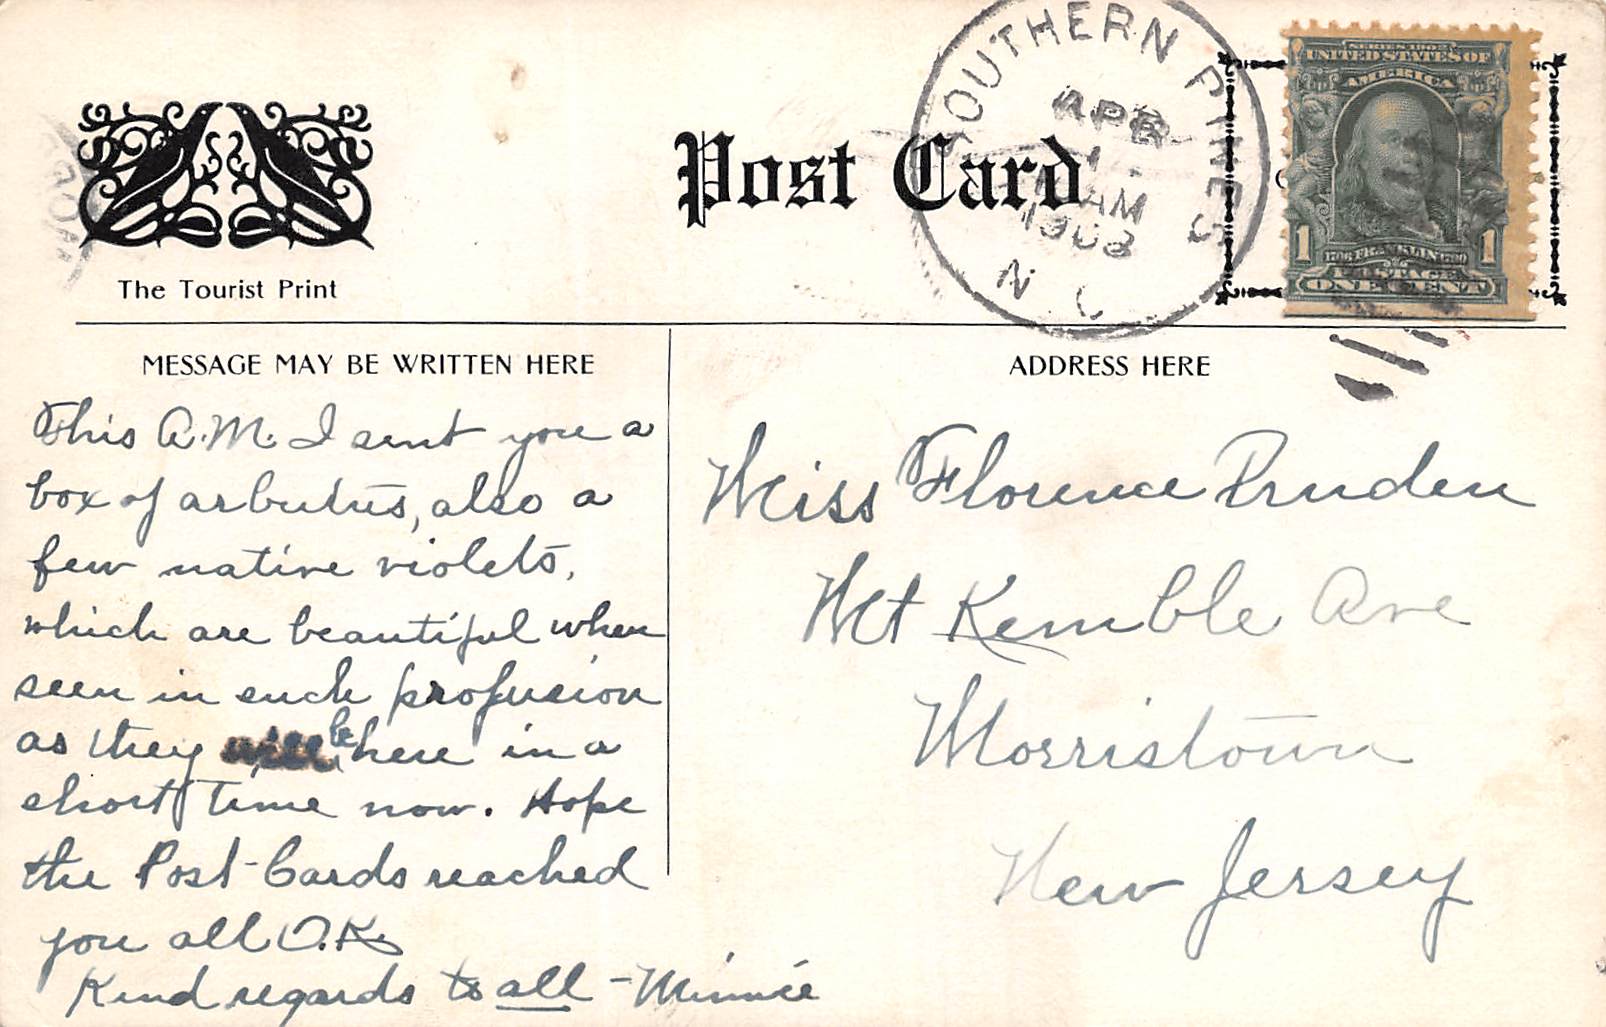 The Tourist Print
Post Card
SOUTHERN PINES
APR
1
AM
1908
N C
SERIES 1902
UNITED STATES OF
AMERICA
1706 FRANKLIN 1790
1 1
POSTAGE
ONE CENT
MESSAGE MAY BE WRITTEN HERE
This A.M. I sent you a
box of arbutus, also a
few native violets,
which are beautiful when
seen in such profusion
as they will be here in a
short time now. Hope
the Post-Cards reached
you all O.K.
Kind regards to all - Minnie
ADDRESS HERE
Miss Florence Pruden
Mt Kemble Ave
Morristown
New Jersey